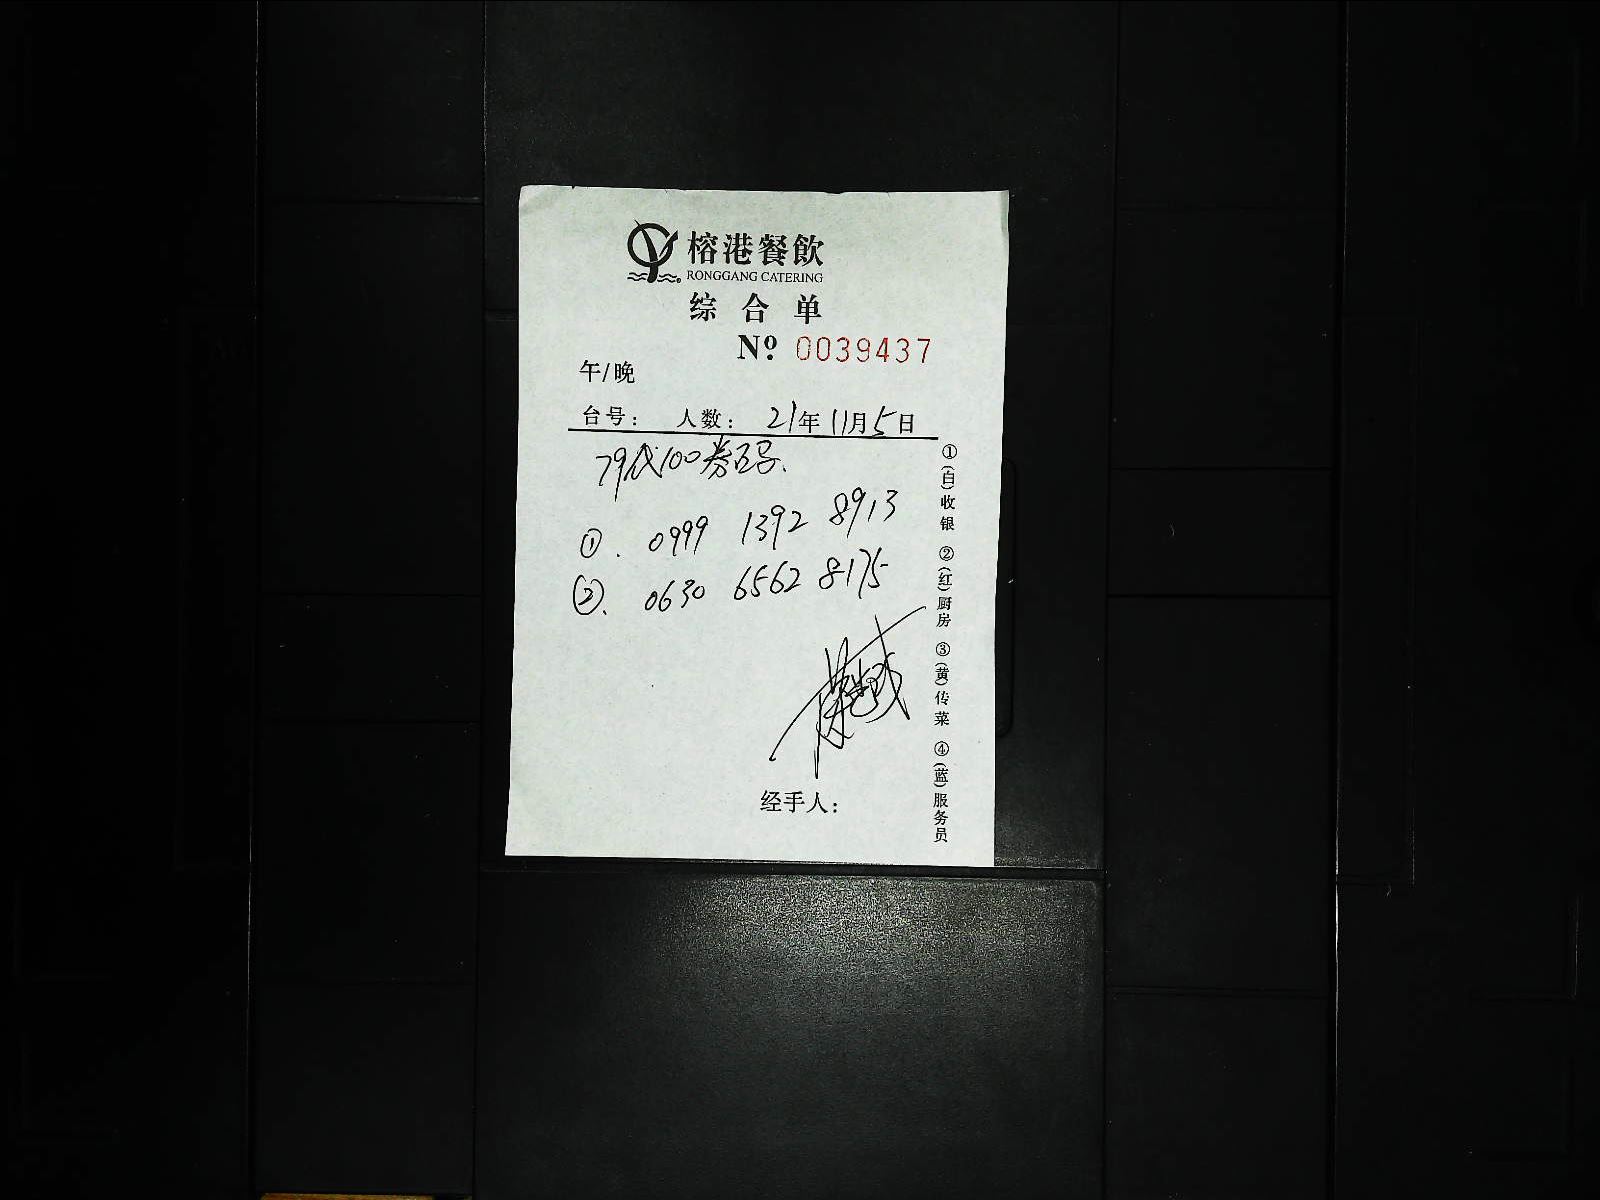 榕港餐飲
RONGGANG CATERING
综合单
Nº 0039437
午/晚
台号： 人数： 21年11月5日
79代100券码、
①. 0999 1392 8913
②. 0630 6562 8175
经手人：
①(白)收银 ②(红)厨房 ③(黄)传菜 ④(蓝)服务员